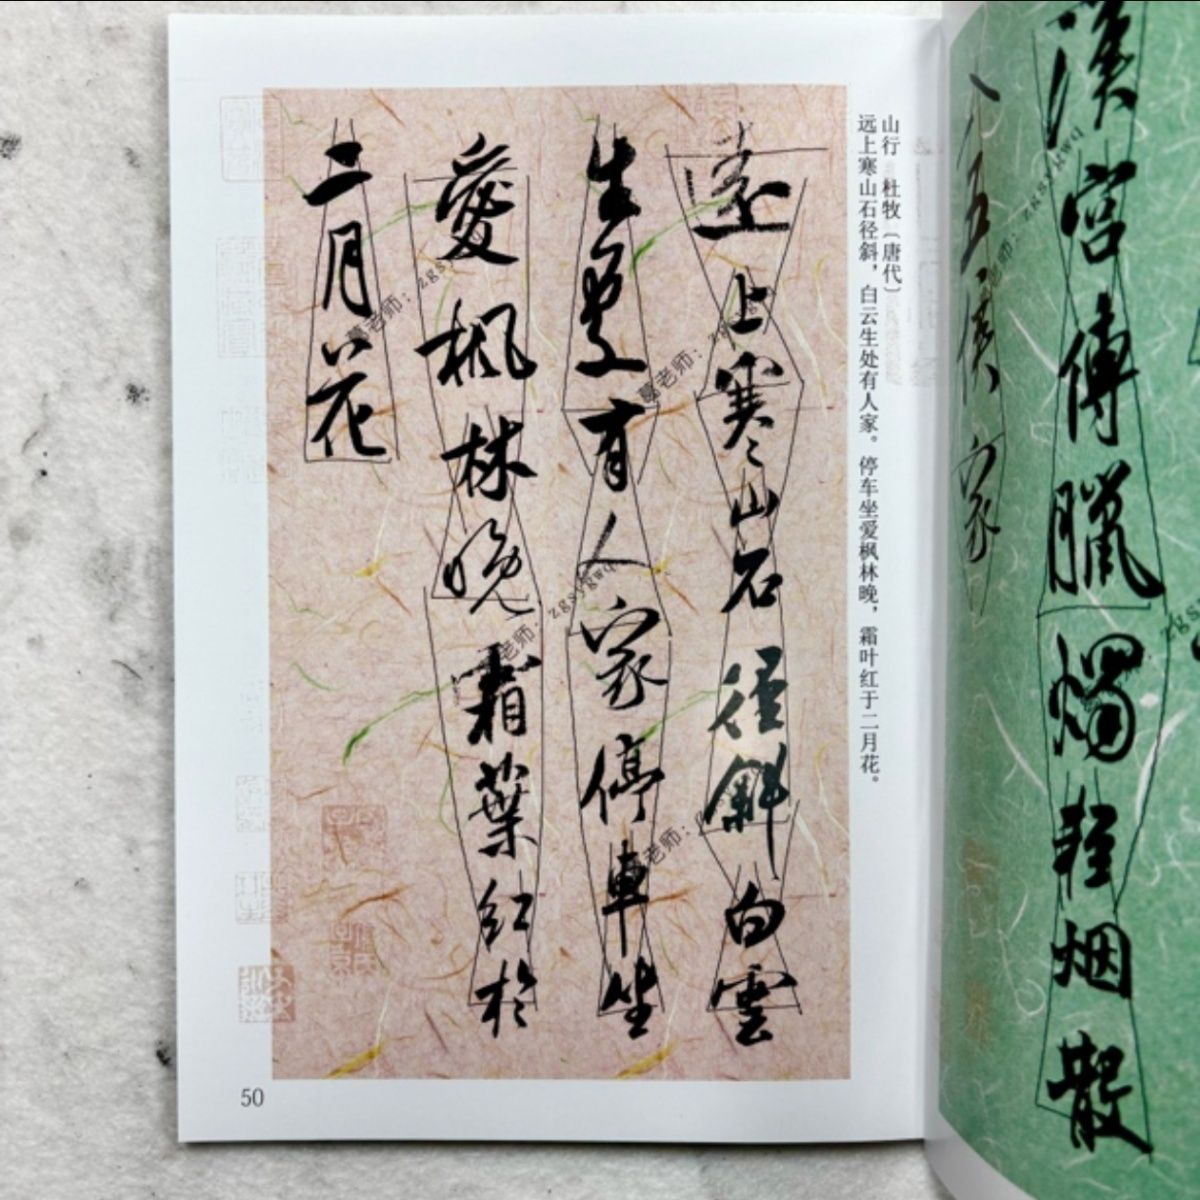 漢宮傳臘燭輕烟散
入五侯家
山行 杜牧〔唐代〕
远上寒山石径斜，白云生处有人家。停车坐爱枫林晚，霜叶红于二月花。
遠上寒山石徑斜白雲
生處有人家停車坐
愛楓林晚霜葉紅於
二月花
50